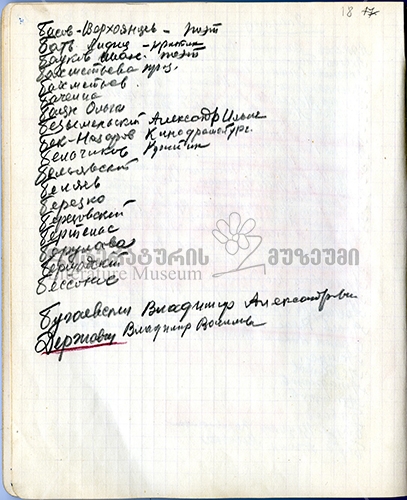 18 17
Басов-Верхоянцев - поэт
Бать Лидия - критик
Бауков Иван. поэт
Бахметьева пр.
Бахметьев
Бачелис
Бацун Ольга
Безыменский Александр Ильич
Бек-Назаров Кинодраматург.
Белочиков
Бельявский
Беляев
Березко
Берзовский
Бертенас
Бершадский
Бессонов
Бугаевский Владимир Александрович
Державин Владимир Васильев
ლიტერატურის მუზეუმი
Literature Museum